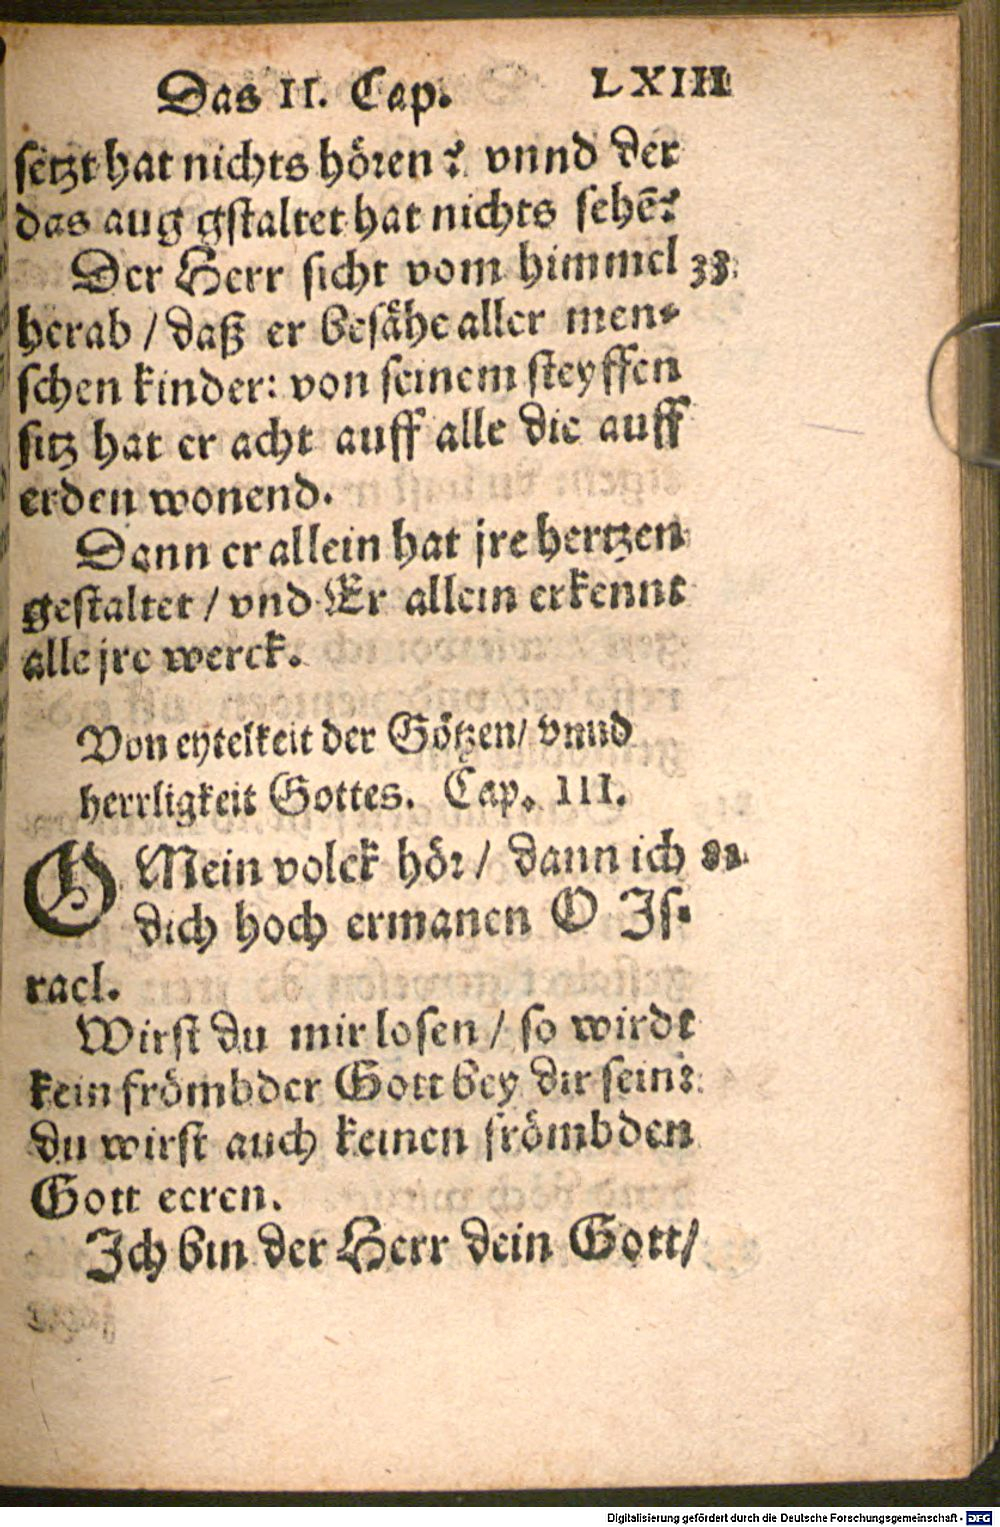 Das II. Cap. LXIII
setzt hat nichts hören? vnnd der
das aug gstaltet hat nichts sehē?
Der Herr sicht vom himmel 33.
herab / daß er besähe aller men-
schen kinder: von seinem steyffen
sitz hat er acht auff alle die auff
erden wonend.
Dann er allein hat jre hertzen
gestaltet / vnd Er allein erkennt
alle jre werck.
Von eytelkeit der Götzen / vnnd
herrligkeit Gottes. Cap. III.
O Mein volck hör / dann ich 81.
dich hoch ermanen O Is-
rael.
Wirst du mir losen / so wirdt
kein frömbder Gott bey dir sein:
du wirst auch keinen frömbden
Gott eeren.
Ich bin der Herr dein Gott /
Digitalisierung gefördert durch die Deutsche Forschungsgemeinschaft - DFG